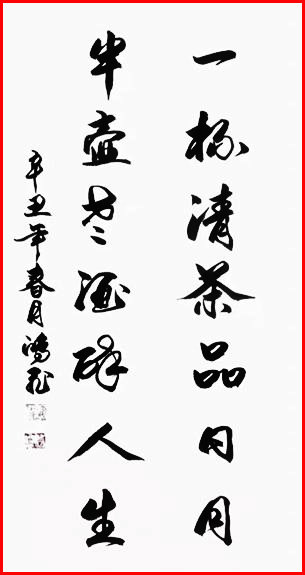 一杯清茶品日月
半壶老酒醉人生
辛丑年春月鸿飞